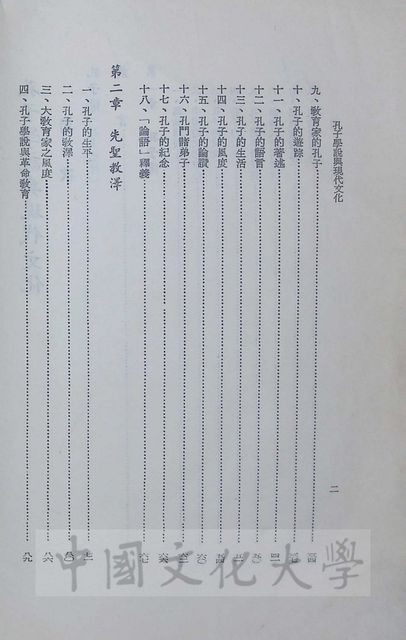 孔子學說與現代文化
二
九、教育家的孔子
十、孔子的遊踪
十一、孔子的著述
十二、孔子的語言
十三、孔子的生活
十四、孔子的風度
十五、孔子的論讚
十六、孔門諸弟子
十七、孔子的紀念
十八、「論語」釋義
第二章 先聖教澤
一、孔子的生平
二、孔子的教澤
三、大教育家之風度
四、孔子學說與革命教育
中國文化大學